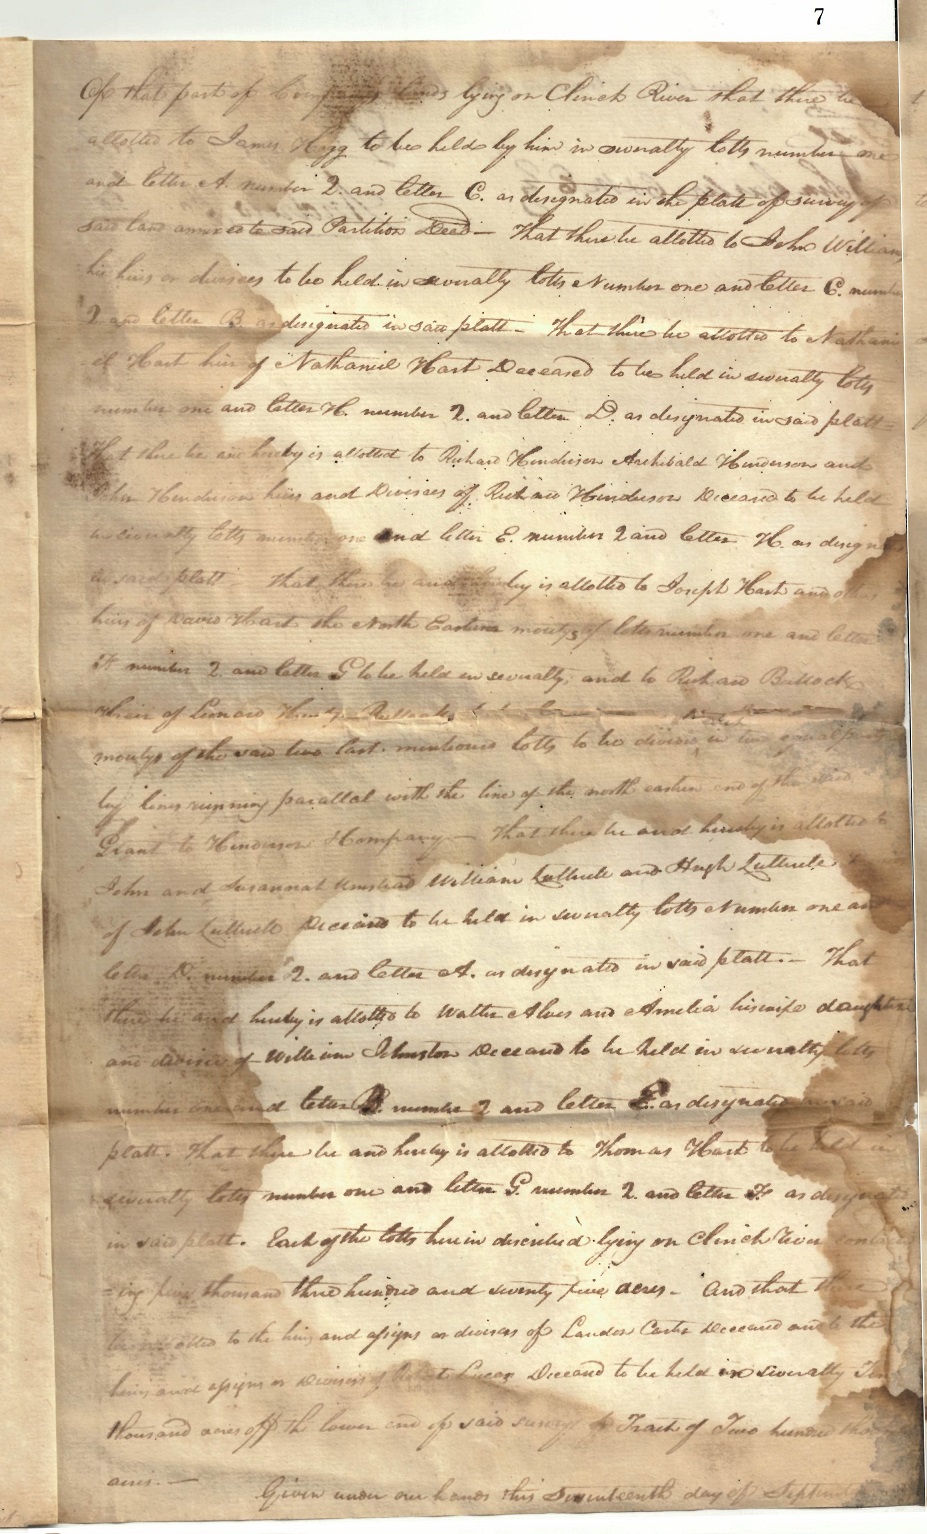 7
Of that part of Company's lands lying on Clinch River that there be
allotted to James Hogg to be held by him in severalty lotts number one
and letter A. number 2. and letter C. as designated in the platt of survey of
said land annexed to said Partition Deed — That there be allotted to John William
his heirs or devisees to be held in severally lotts Number one and letter C. number
2 and letter B. as designated in said platt — That there be allotted to Nathani
el Hart heir of Nathaniel Hart Deceased to be held in severalty lotts
number one and letter H. number 2. and letter D. as designated in said platt =
That there be and hereby is allotted to Richard Henderson Archibald Henderson and
John Henderson heirs and Devisees of Richard Henderson Deceased to be held
in severalty lotts number one and letter E. number 2 and letter H. as design
in said platt That there be and hereby is allotted to Joseph Hart and other
heirs of David Hart the North Eastern moiety of lotts number one and letter
F number 2. and letter G to be held in severalty, and to Richard Bullock
Heir of Leonard Bullock
moiety of the said two last mentioned lotts to be divided in two equal parts
by lines running parallal with the line of the north eastern end of the said
Grant to Henderson & Company — That there be and hereby is allotted to
John and Susannah Umstead William Luttrele and Hugh Luttrele
of John Luttrele Deceased to be held in severalty lotts Number one and
letter D. number 2. and letter A. as designated in said platt. — That
there be and hereby is allotted to Walter Alves and Amelia his wife daughter
and devisee of William Johnston Deceased to be held in severalty lotts
number one and letter B. number 2 and letter E. as designated in said
platt. That there be and hereby is allotted to Thomas Hart to be held in
severalty lotts number one and letter G. number 2. and letter F as designated
in said platt. Each of the lotts herein discribed lying on Clinch River contain
=ing five thousand three hundred and seventy five acres — And that there
be allotted to the heirs and assigns or devisees of Landon Carter Deceased and to the
heirs and assigns or Devisees of Robert Lucas Deceased to be held in severalty Ten
thousand acres off the lower end of said survey or Tract of Two hundred thousand
acres. —
Given under our hands this Seventeenth day of September